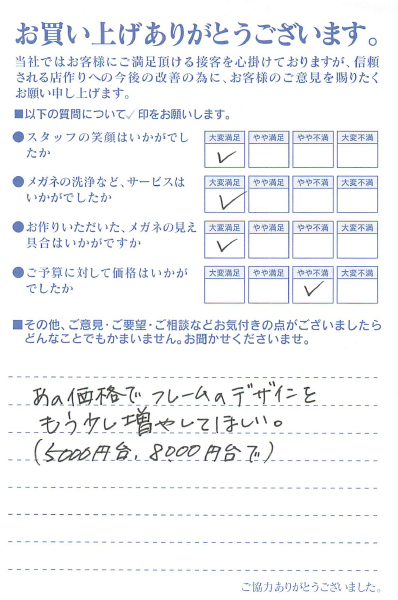 お買い上げありがとうございます。
当社ではお客様にご満足頂ける接客を心掛けておりますが、信頼
される店作りへの今後の改善の為に、お客様のご意見を賜りたく
お願い申し上げます。
■以下の質問について✓印をお願いします。
●スタッフの笑顔はいかがでし
たか
大変満足 やや満足 やや不満 大変不満
✓
●メガネの洗浄など、サービスは
いかがでしたか
大変満足 やや満足 やや不満 大変不満
✓
●お作りいただいた、メガネの見え
具合はいかがですか
大変満足 やや満足 やや不満 大変不満
✓
●ご予算に対して価格はいかが
でしたか
大変満足 やや満足 やや不満 大変不満
✓
■その他、ご意見・ご要望・ご相談などお気付きの点がございましたら
どんなことでもかまいません。お聞かせくださいませ。
あの価格でフレームのデザインを
もう少し増やしてほしい。
(5000円台、8000円台で)
ご協力ありがとうございました。